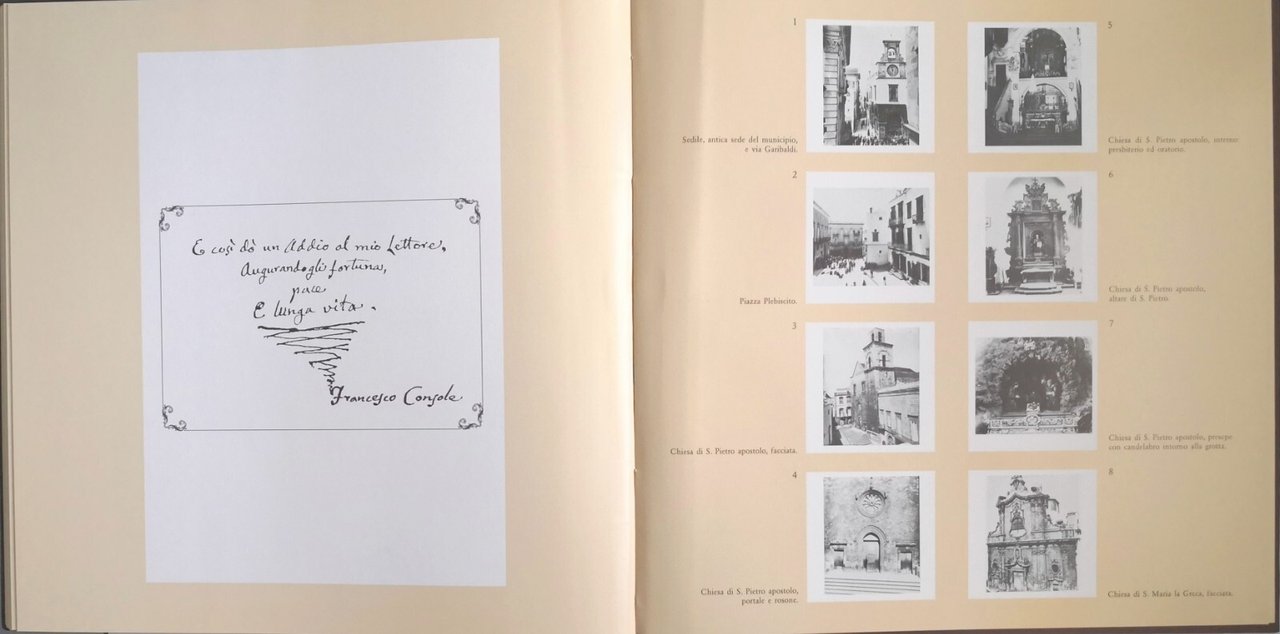 E così dò un Addio al mio Lettore,
Augurandogli fortuna,
pace
E lunga vita.
Francesco Console
1
Sedile, antica sede del municipio,
e via Garibaldi.
2
Piazza Plebiscito.
3
Chiesa di S. Pietro apostolo, facciata.
4
Chiesa di S. Pietro apostolo,
portale e rosone.
5
Chiesa di S. Pietro apostolo, interno:
presbiterio ed oratorio.
6
Chiesa di S. Pietro apostolo,
altare di S. Pietro.
7
Chiesa di S. Pietro apostolo, presepe
con candelabro intorno alla grotta.
8
Chiesa di S. Maria la Greca, facciata.